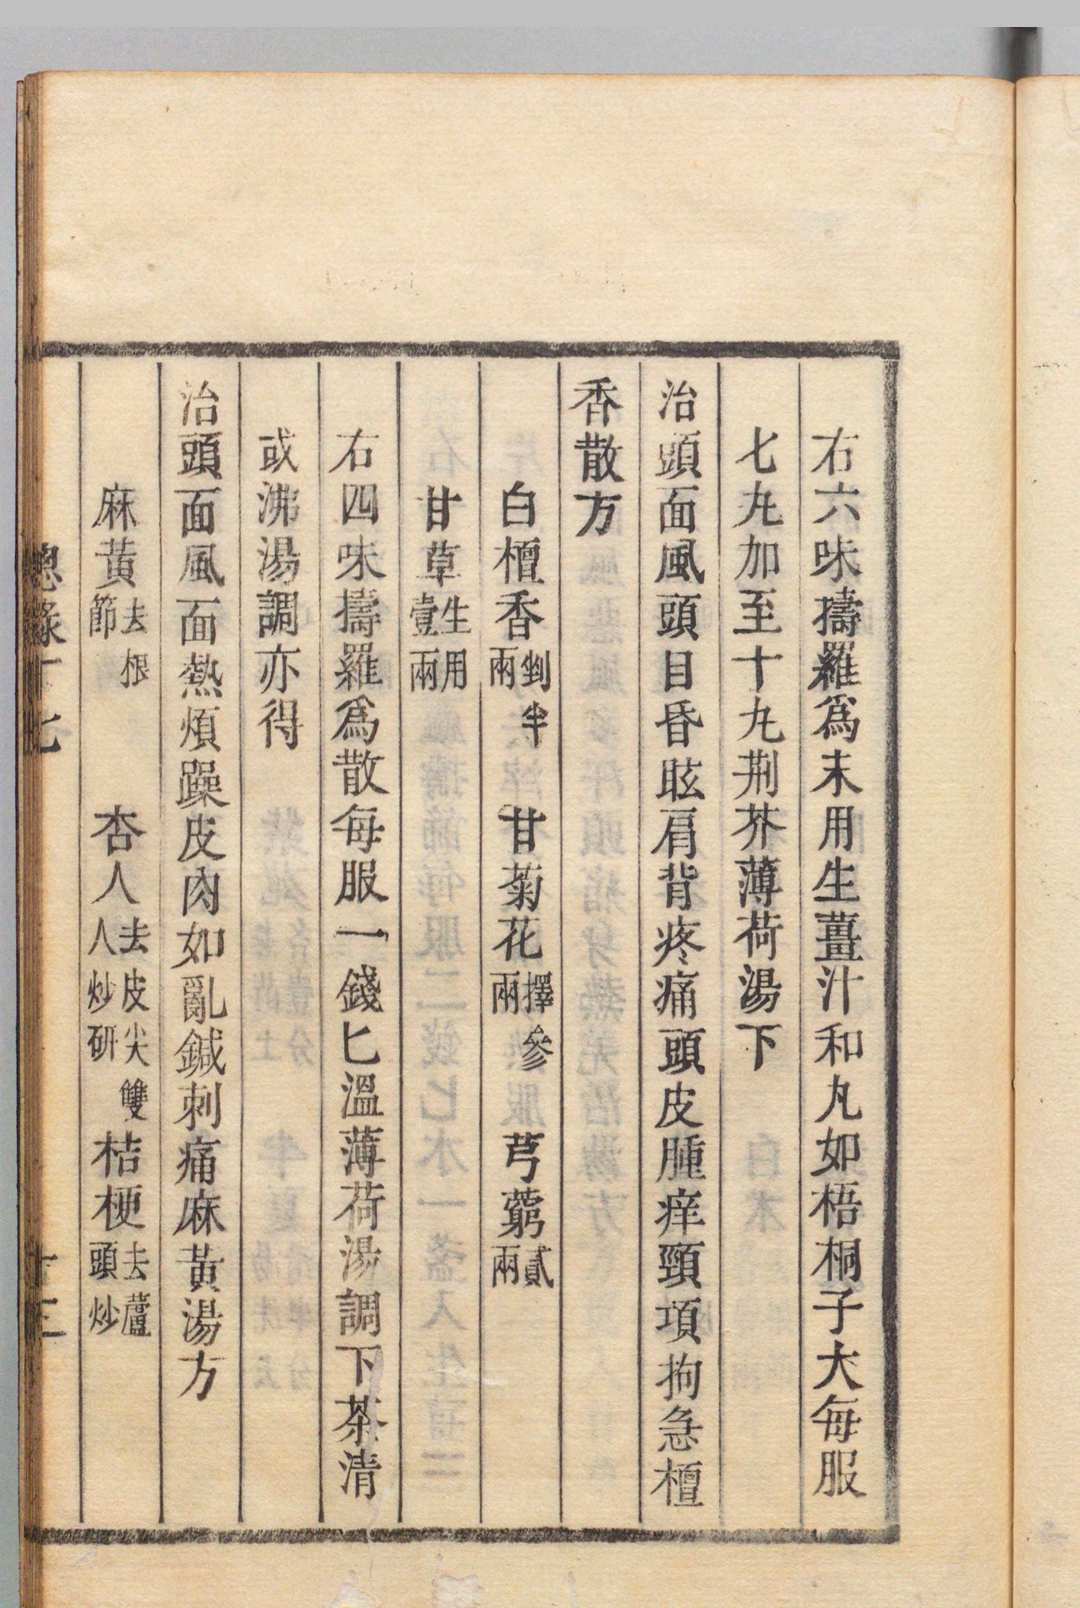 右六味擣羅爲末用生薑汁和丸如梧桐子大每服
七丸加至十丸荆芥薄荷湯下
治頭面風頭目昏眩肩背疼痛頭皮腫痒頸項拘急檀
香散方
白檀香剉半兩 甘菊花擇參兩 芎藭貳兩
甘草生用壹兩
右四味擣羅爲散每服一錢匕溫薄荷湯調下茶清
或沸湯調亦得
治頭面風面熱煩躁皮肉如亂鍼刺痛麻黃湯方
麻黃去根節 杏人去皮尖雙人炒研 桔梗去蘆頭炒